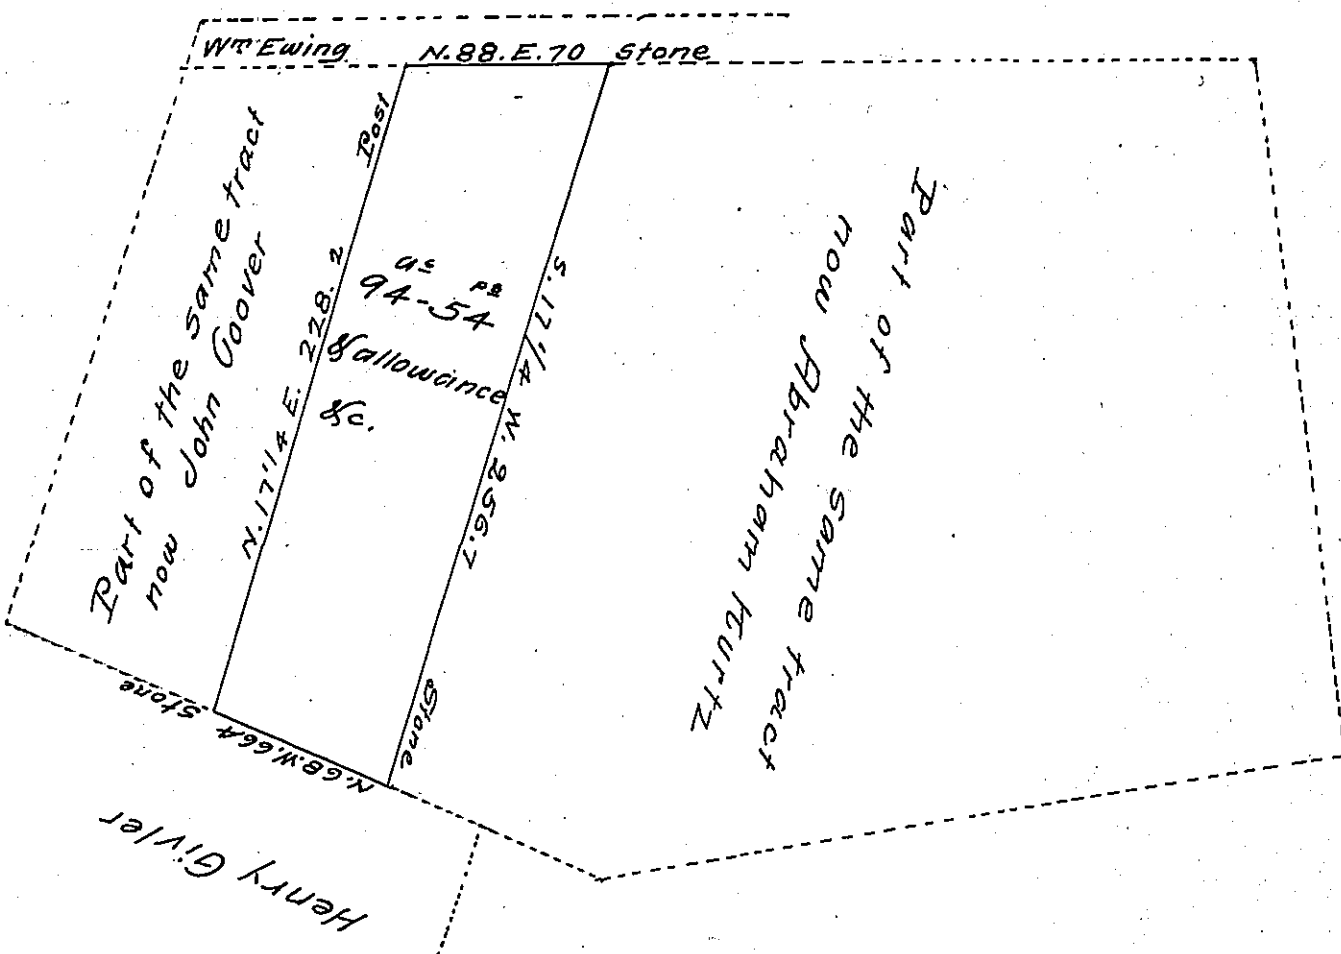 Wm Ewing
N.88.E.70 Stone
Post
Part of the same tract
now John Coover
N.17 1/4 E. 228.2
as ps
94-54
& allowance
&c.
S.17 1/4 W. 256.7
Part of the same tract
now Abraham Kurtz
Stone
Stone
N.68.W.66.4
Henry Givler